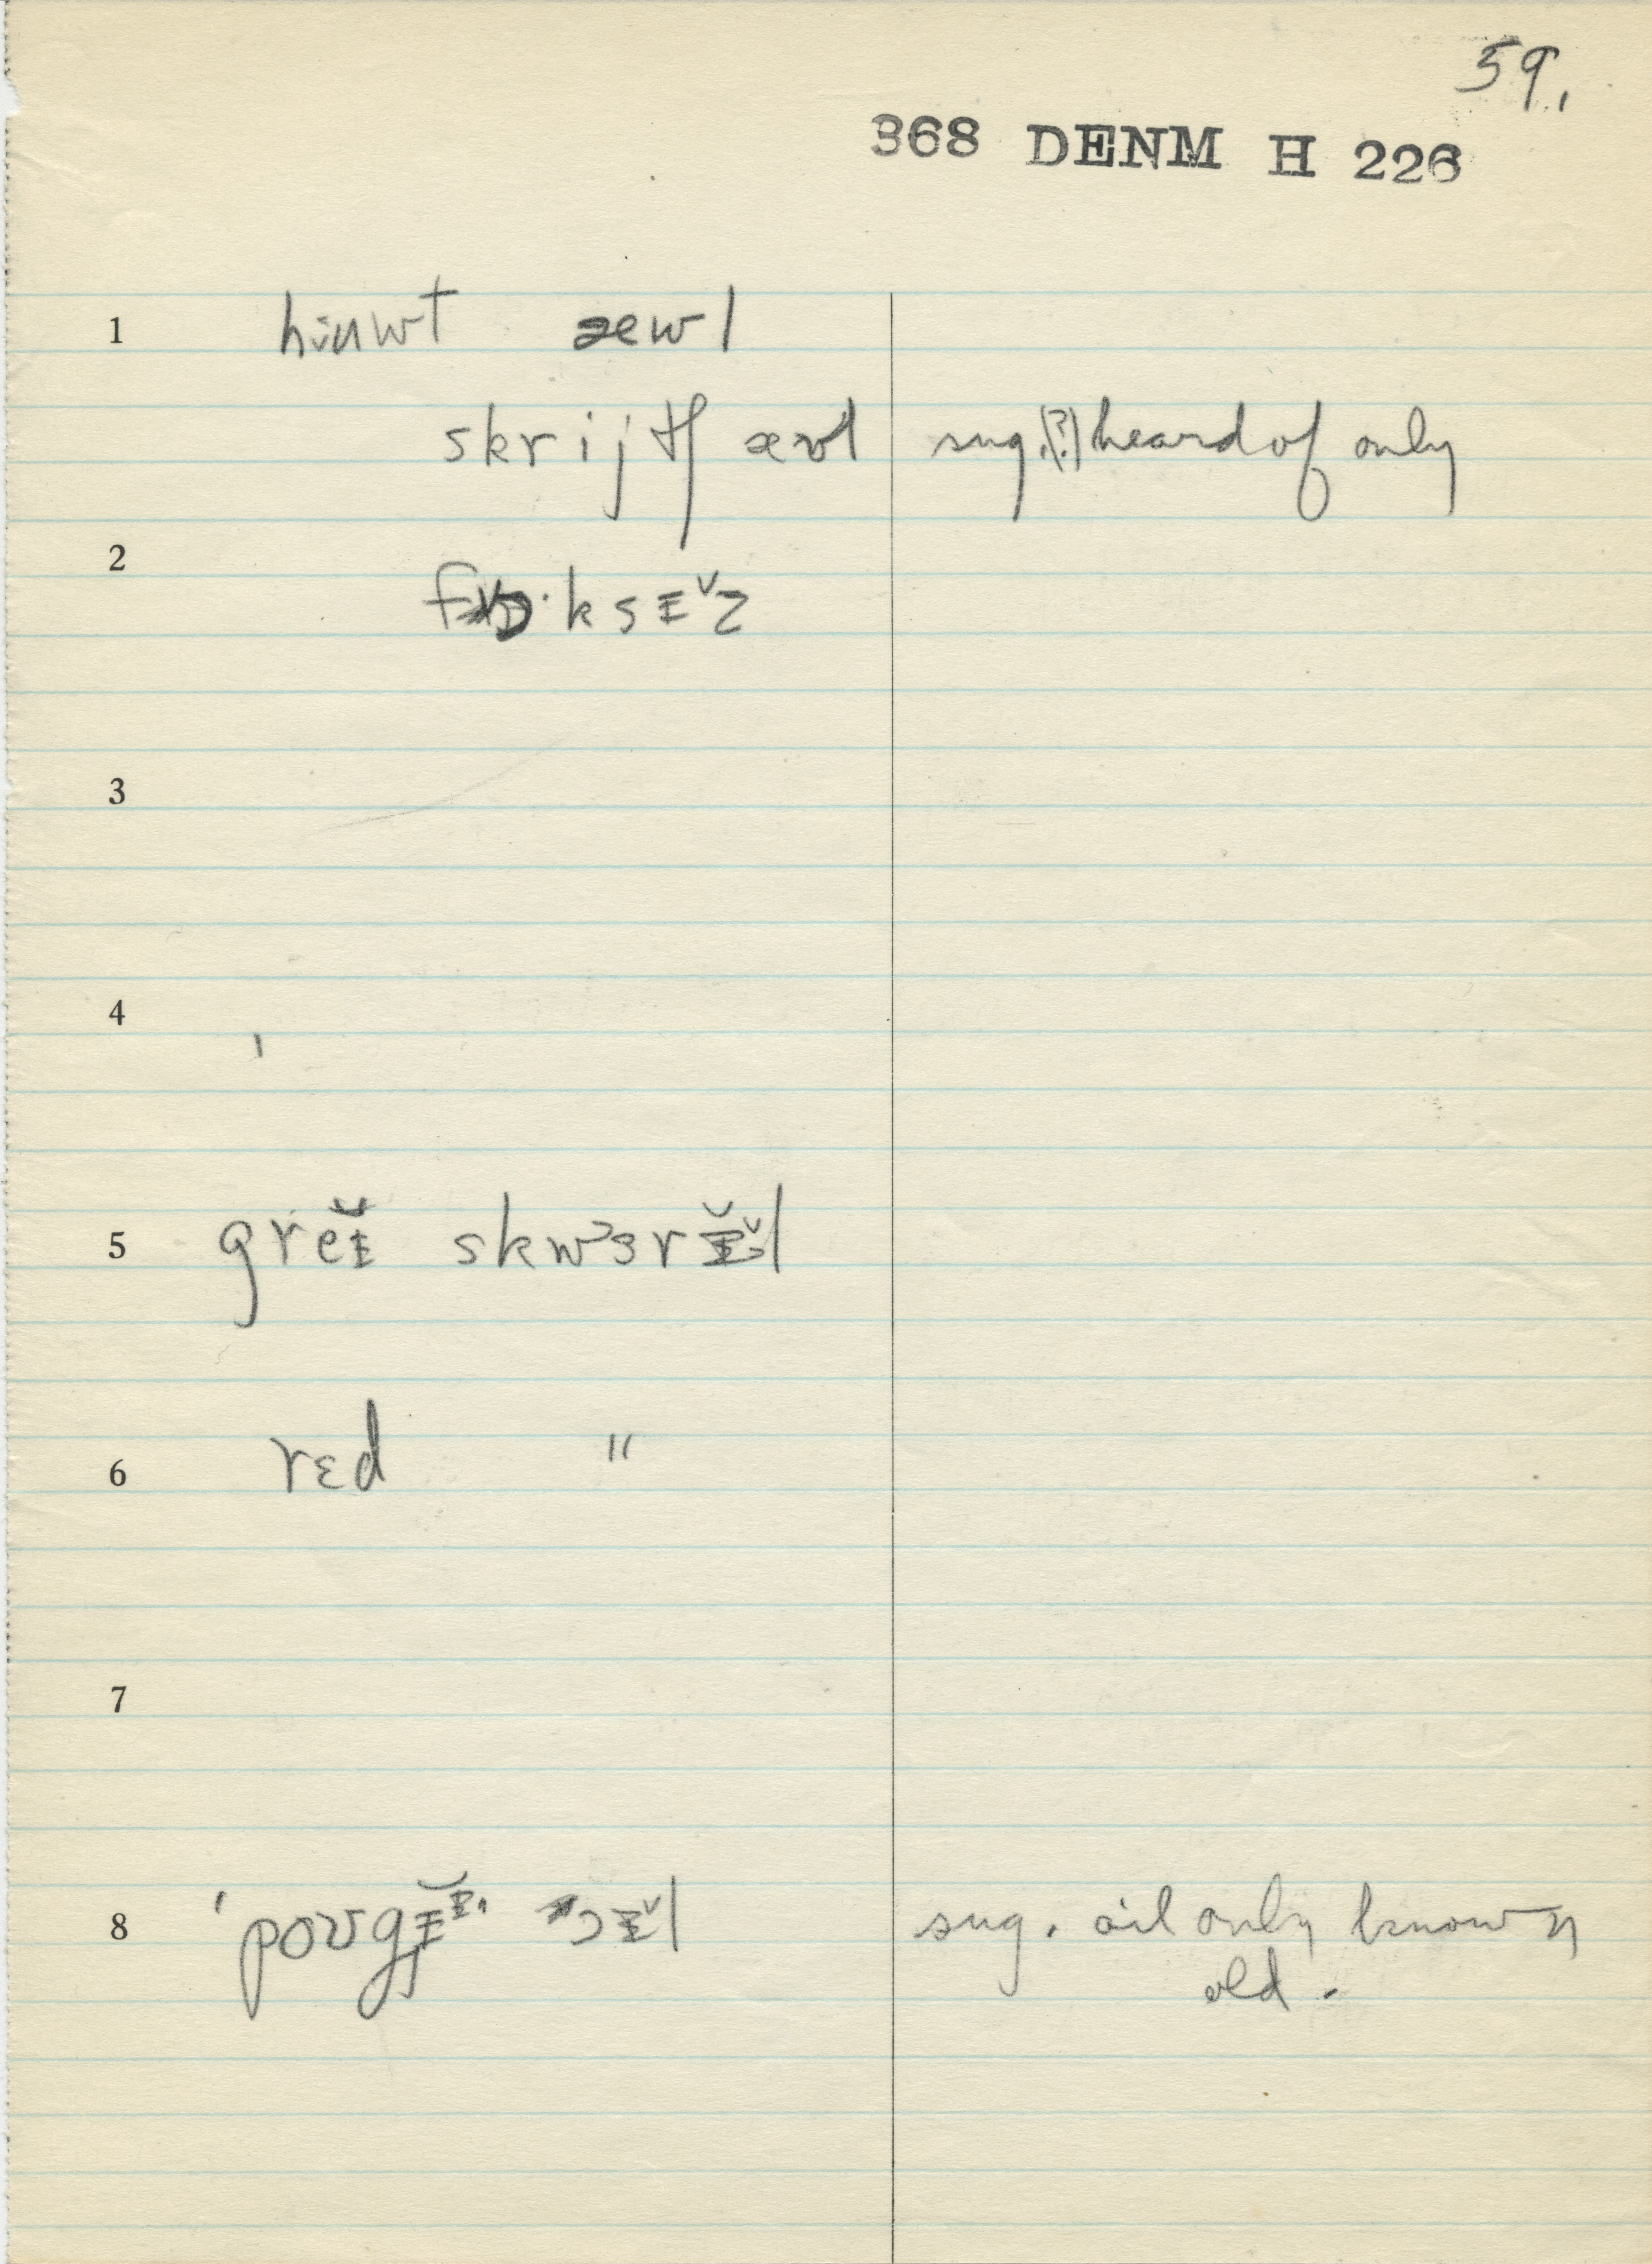 59.
368 DENM H 226
1 huwt æwl
skrijtʃ aʊl sug.(?) heard of only
2
3
4
5 greɪ̆ skwɜrɪ̆l
6 rɛd "
7
8 sug. oil only known
old.